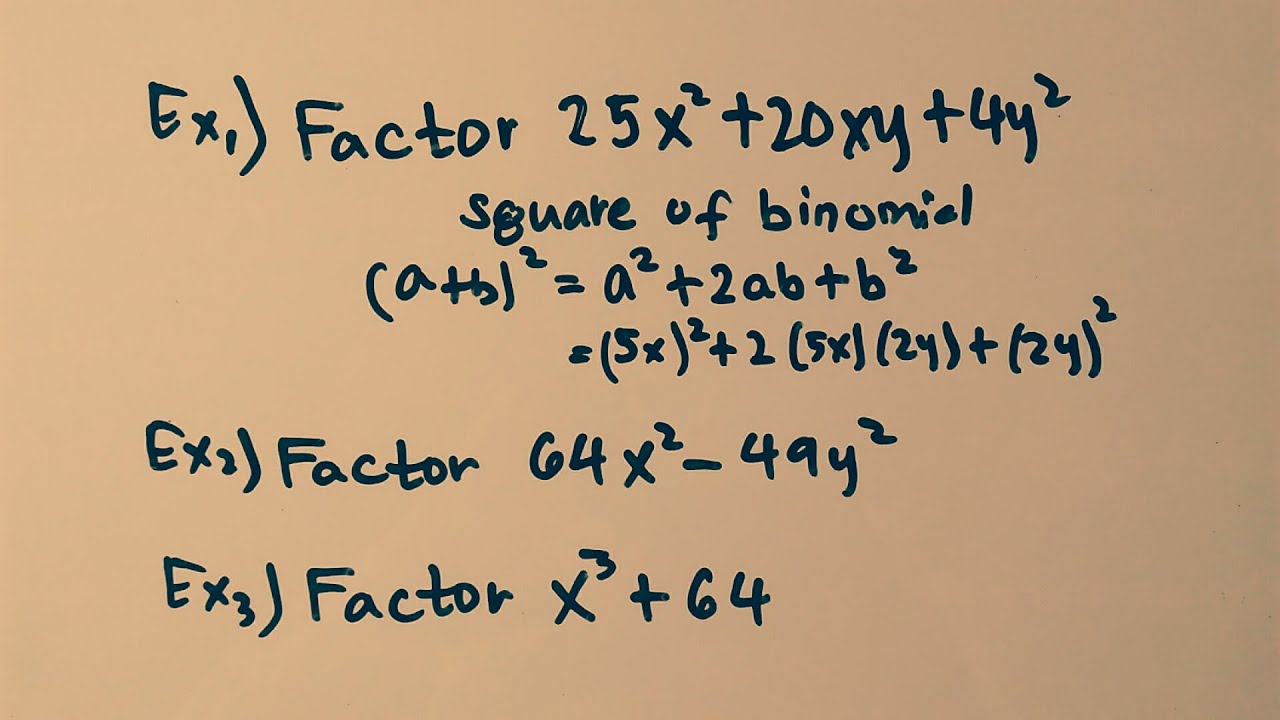 Ex₁) Factor 25x² + 20xy + 4y²
square of binomial
(a+b)² = a² + 2ab + b²
= (5x)² + 2 (5x) (2y) + (2y)²
Ex₂) Factor 64x² - 49y²
Ex₃) Factor x³ + 64